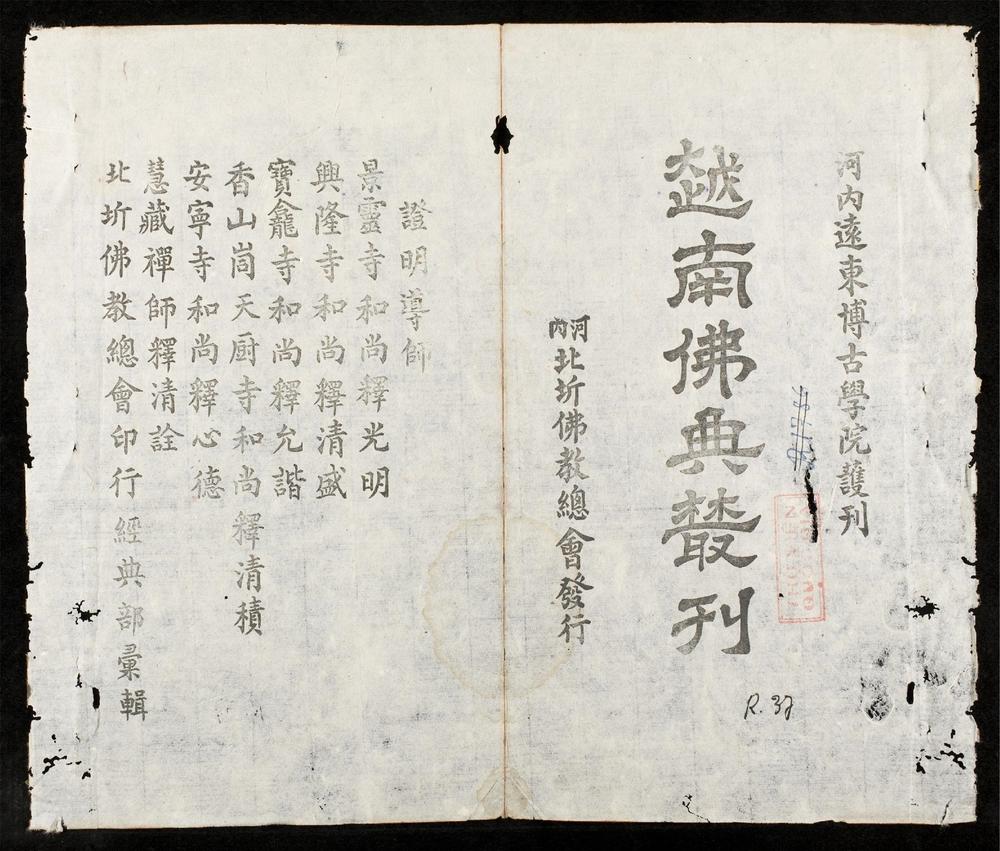 河內遠東博古學院護刊
越南佛典叢刊
河內北圻佛教總會發行
證明導師
景靈寺和尚釋光明
興隆寺和尚釋清盛
寶龕寺和尚釋允諧
香山峝天厨寺和尚釋清積
安寧寺和尚釋心德
慧藏禪師釋清詮
北圻佛教總會印行經典部彙輯
R.37